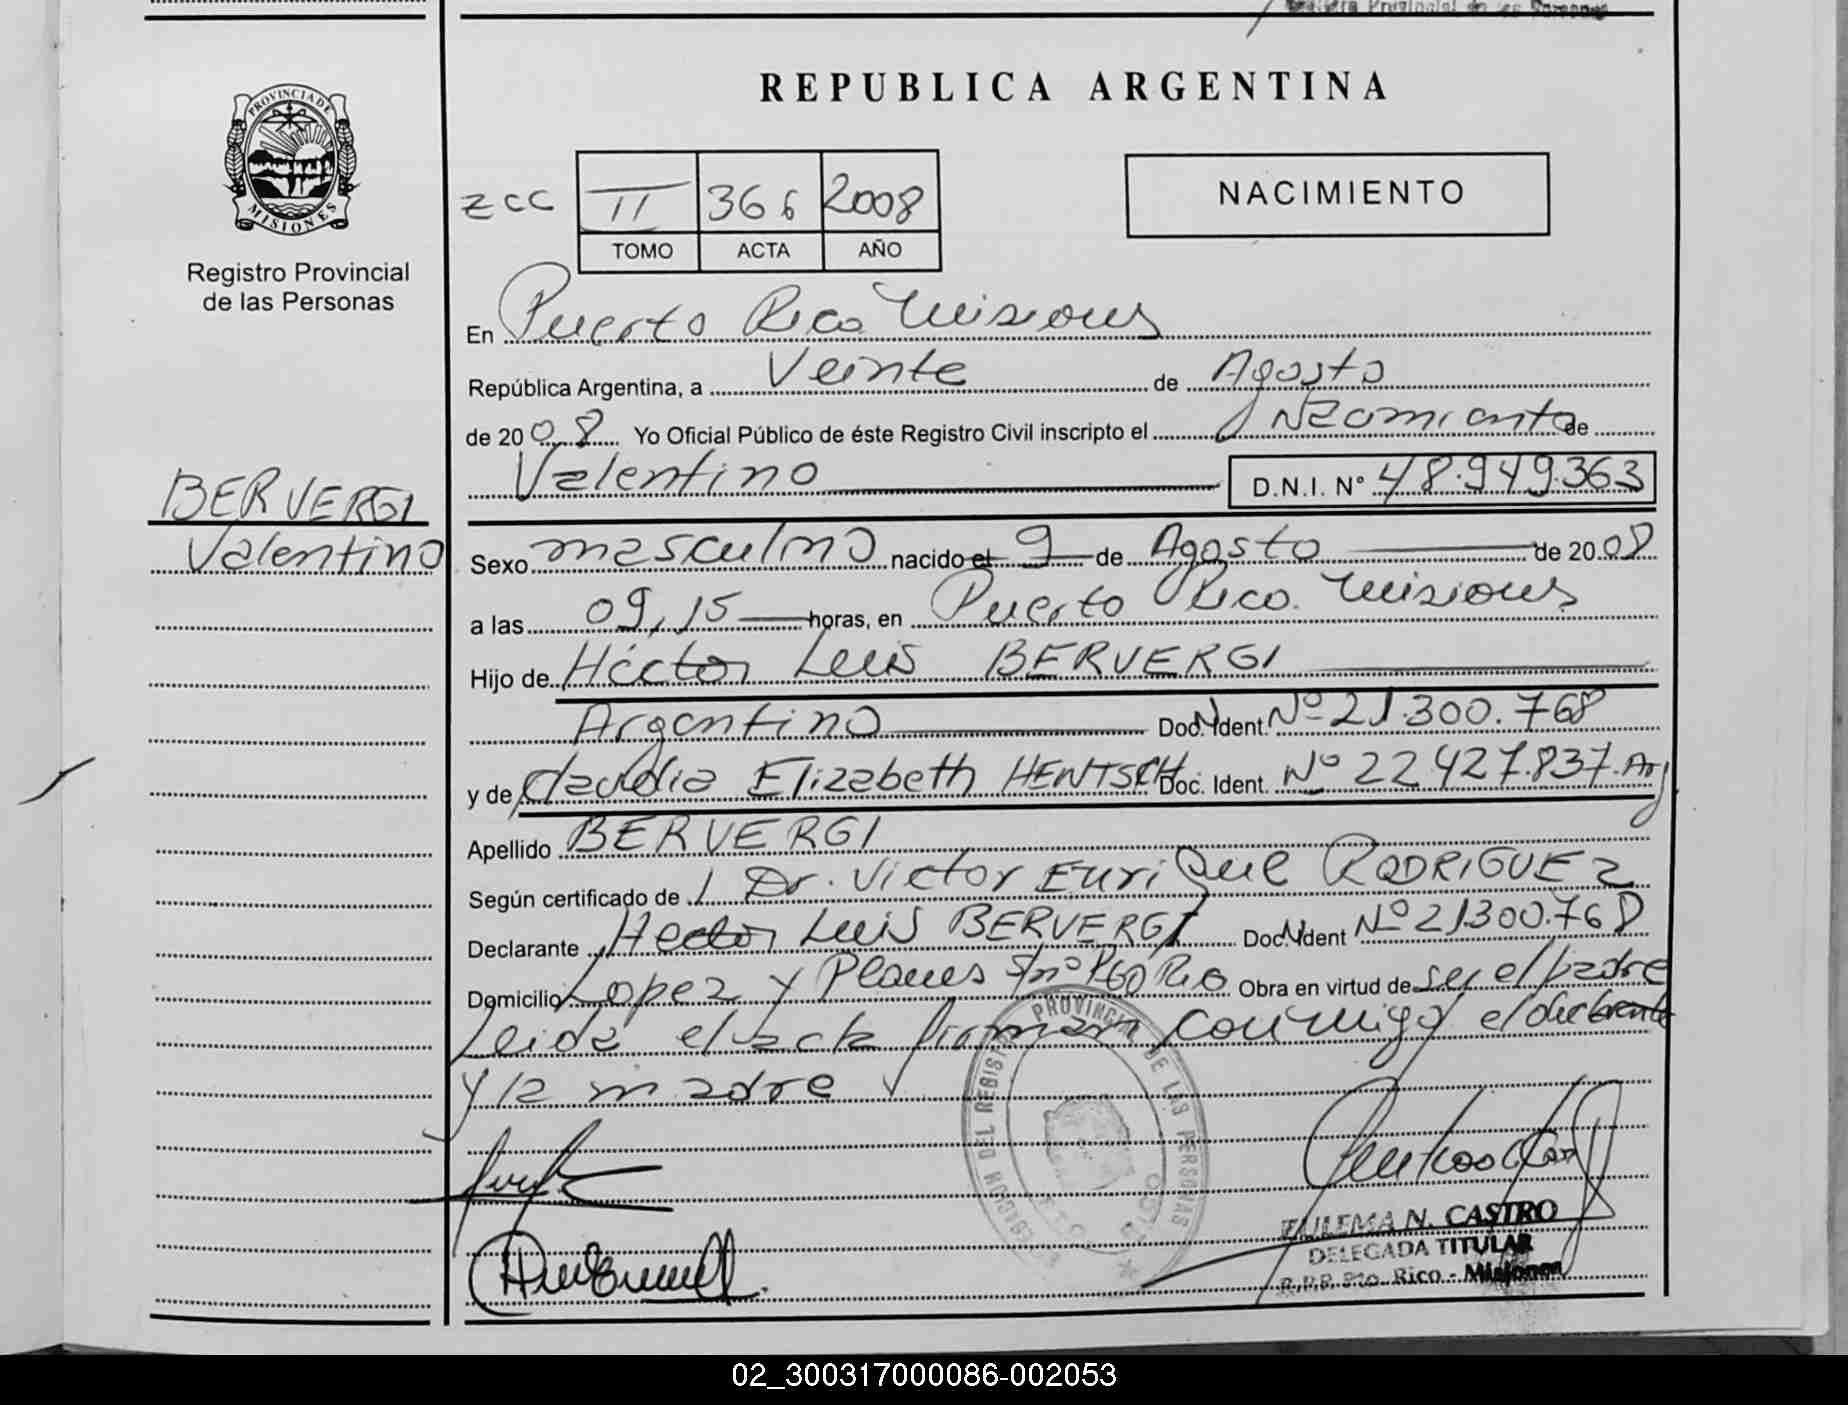 Registro Provincial de las Personas
REPUBLICA ARGENTINA
PROVINCIA DE
MISIONES
Registro Provincial
de las Personas
zcc
II 366 2008
TOMO ACTA AÑO
NACIMIENTO
En Puerto Rico Misiones
República Argentina, a Veinte de Agosto
de 2008 Yo Oficial Público de éste Registro Civil inscripto el Nacimiento de
Valentino D.N.I. N° 48.949.363
BERVERGI
Valentino
Sexo masculino nacido el 9 de Agosto de 2008
a las 09,15 horas, en Puerto Rico. Misiones
Hijo de Héctor Luis BERVERGI
Argentino Doc. Ident. Nº 21.300.768
y de Claudia Elizabeth HENTSCH Doc. Ident. Nº 22.427.837. Arg
Apellido BERVERGI
Según certificado de Dr. Victor Enrique RODRIGUEZ
Declarante Hector Luis BERVERGI Doc. Ident Nº 21300.768
Domicilio Lopez y Planes S/nº Pto Rico Obra en virtud de ser el padre
Leida el acta firman conmigo el declarante
y la madre
PROVINCIAL DE LAS PERSONAS
DEL REGISTRO
ZULEMA N. CASTRO
DELEGADA TITULAR
R.P.P. Pto. Rico - Misiones
02_300317000086-002053